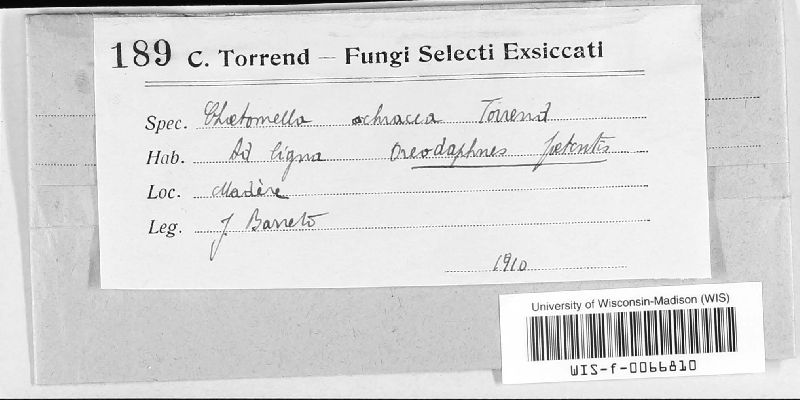 189 C. Torrend — Fungi Selecti Exsiccati
Spec. Chætomella ochracea Torrend
Hab. Ad ligna Oreodaphnes fœtentis
Loc. Madère
Leg. J. Barreto
1910
University of Wisconsin-Madison (WIS)
WIS-f-0066810